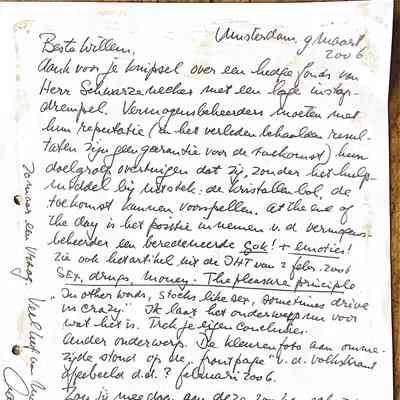 Amsterdam, 9 maart
2006
Beste Willem,
dank voor je knipsel over een hedge fonds van
Herr Schwarzenecker met een lage instap-
drempel. Vermogensbeheerders moeten met
hun reputatie (in het verleden behaalde resul-
taten zijn geen garantie voor de toekomst) hun
doelgroep overtuigen dat zij, zonder het hulp-
middel bij uitstek: de kristallen bol, de
toekomst kunnen voorspellen. At the end of
the day is het positie innemen v.d. vermogens-
beheerder een beredeneerde Gok! + emoties!
zie ook het artikel uit de IHT van 2 febr. 2006
Sex, drugs, money. The pleasure principle
"In other words, stocks like sex, sometimes drive
us crazy." Ik laat het onderwerp nu voor
wat het is. Trek je eigen conclusies.
Ander onderwerp. De kleurenfoto aan omme-
zijde stond op de "frontpage" v.d. Volkskrant
afgebeeld d.d. ? februari 2006.
zomaar een vraag.